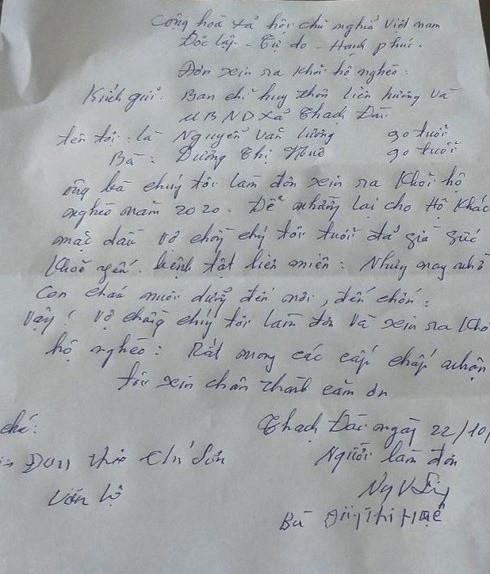 Cộng hoà xã hội chủ nghĩa Việt nam
Độc lập - Tự do - Hạnh phúc.
Đơn xin ra khỏi hộ nghèo:
Kính gửi: Ban chỉ huy thôn liên hương Và
UBND xã Thạch Đài.
tên tôi: là Nguyễn Văn Lương 90 tuổi
Bà: Dương Thị Huê 90 tuổi
ông bà chúng tôi làm đơn xin ra khỏi hộ
nghèo năm 2020. Để nhường lại cho Hộ khác
mặc dầu vợ chồng chúng tôi tuổi đã già sức
khoẻ yếu. bệnh tật liên miên: Nhưng may nhờ
Con cháu nuôi dưỡng đến nơi, đến chốn:
Vậy! Vợ chồng chúng tôi làm đơn Và xin ra khỏi
hộ nghèo: Rất mong các cấp chấp nhận
tôi xin chân thành cảm ơn
Thạch Đài ngày 22/10/
chú:
Người làm đơn
Đơn
Bà